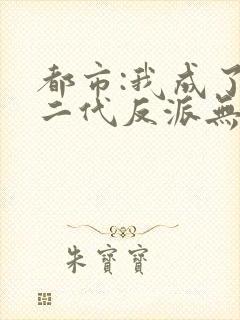 都市:我成了
二代反派無
朱寶寶